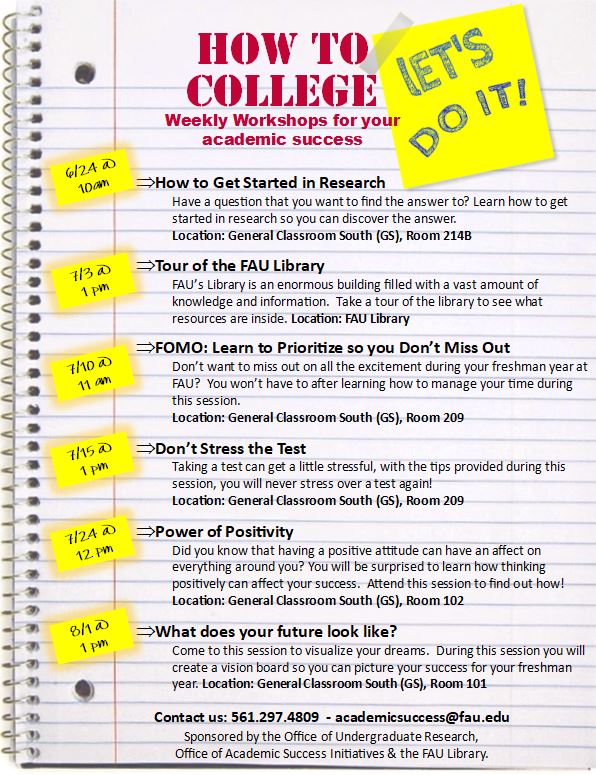 HOW TO
COLLEGE
LET'S
DO IT!
Weekly Workshops for your
academic success
6/24 @
10am
⇒How to Get Started in Research
Have a question that you want to find the answer to? Learn how to get
started in research so you can discover the answer.
Location: General Classroom South (GS), Room 214B
7/3 @
1 pm
⇒Tour of the FAU Library
FAU's Library is an enormous building filled with a vast amount of
knowledge and information. Take a tour of the library to see what
resources are inside. Location: FAU Library
7/10 @
11 am
⇒FOMO: Learn to Prioritize so you Don't Miss Out
Don't want to miss out on all the excitement during your freshman year at
FAU? You won't have to after learning how to manage your time during
this session.
Location: General Classroom South (GS), Room 209
7/15 @
1 pm
⇒Don't Stress the Test
Taking a test can get a little stressful, with the tips provided during this
session, you will never stress over a test again!
Location: General Classroom South (GS), Room 209
7/24 @
12 pm
⇒Power of Positivity
Did you know that having a positive attitude can have an affect on
everything around you? You will be surprised to learn how thinking
positively can affect your success. Attend this session to find out how!
Location: General Classroom South (GS), Room 102
8/1 @
1 pm
⇒What does your future look like?
Come to this session to visualize your dreams. During this session you will
create a vision board so you can picture your success for your freshman
year. Location: General Classroom South (GS), Room 101
Contact us: 561.297.4809 - academicsuccess@fau.edu
Sponsored by the Office of Undergraduate Research,
Office of Academic Success Initiatives & the FAU Library.